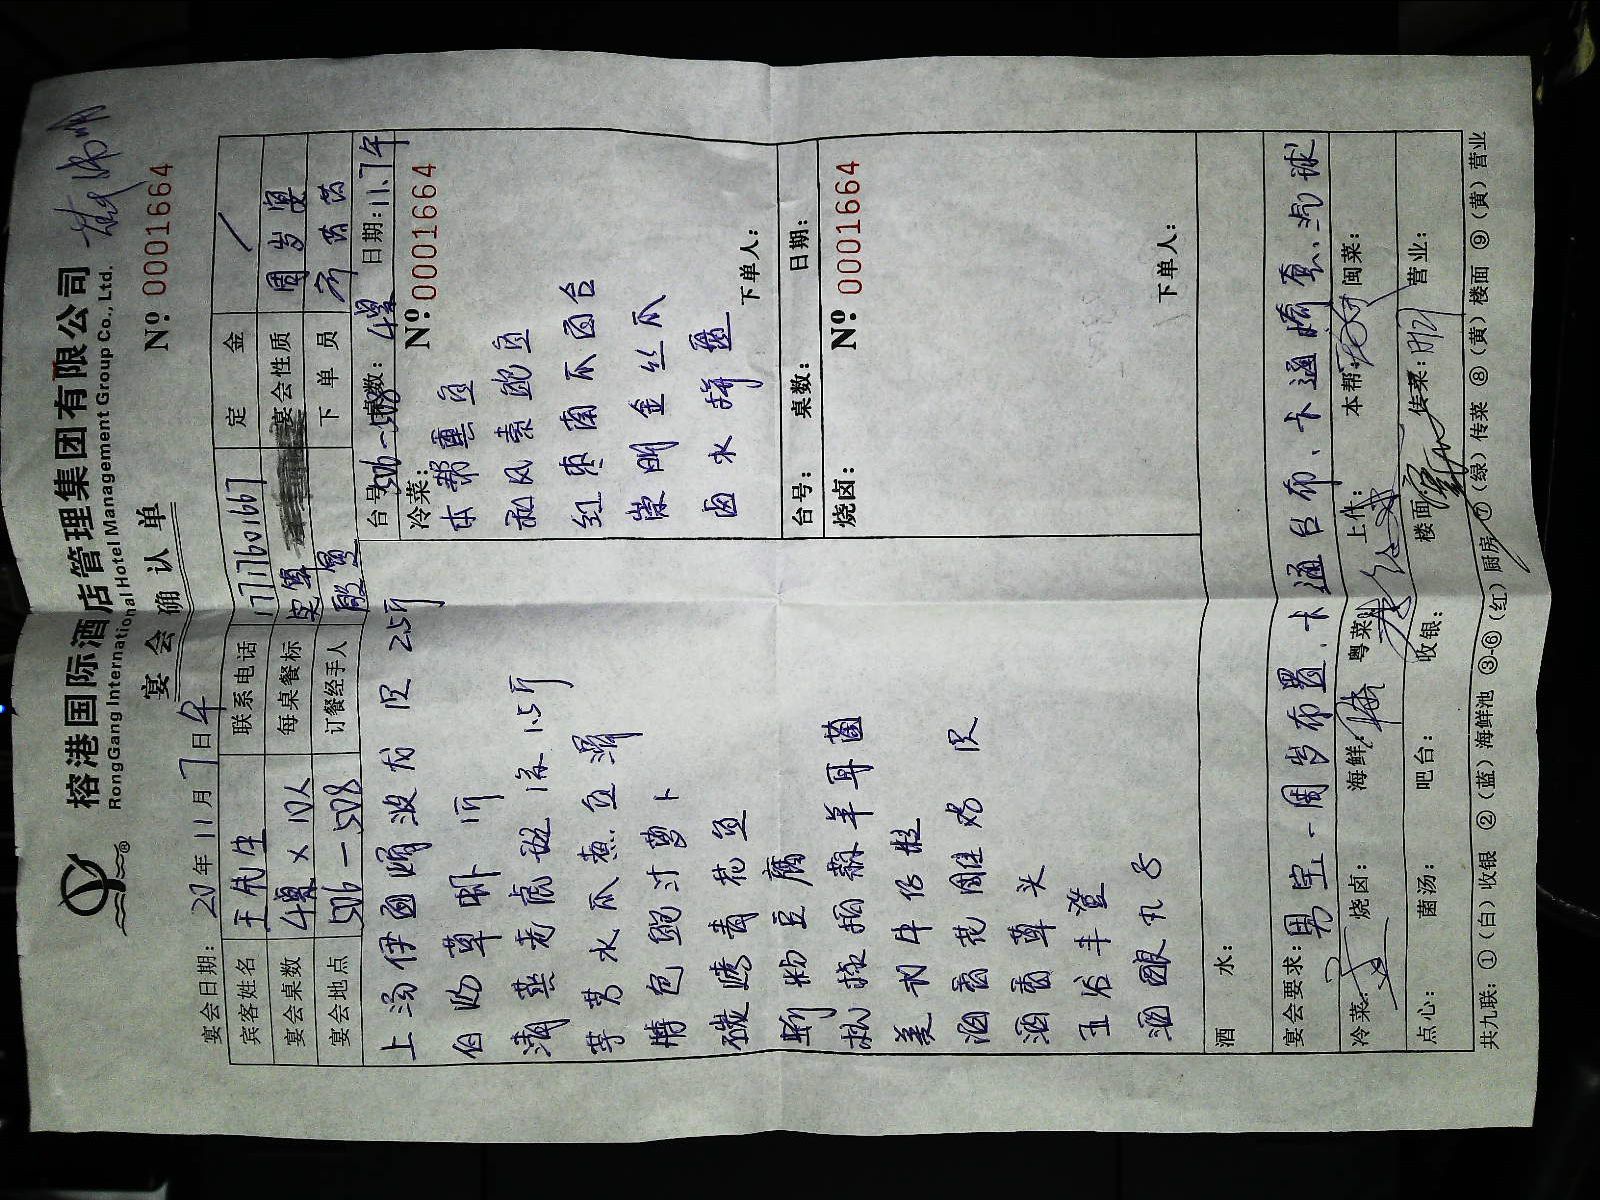 榕港国际酒店管理集团有限公司
RongGang International Hotel Management Group Co., Ltd.
宴会确认单
Nº: 0001664
宴会日期: 20年11月7日午
宾客姓名 王先生 联系电话 17717601667 定金 /
宴会桌数 4桌×10人 每桌餐标 宴会性质 周岁宴
宴会地点 506-508 订餐经手人 下单员
台号: 506-508 桌数: 4桌 日期: 11.7午
冷菜: Nº: 0001664
本帮熏鱼
和风素鲍鱼
红枣南瓜百合
崇明金丝瓜
卤水拼盘
下单人:
台号: 桌数: 日期:
烧卤: Nº: 0001664
下单人:
上汤伊面焗波龙 1只 2.5斤
白灼草虾 1斤
清蒸老虎斑 1条 1.5斤
水瓜煮鱼滑
鲍汁萝卜
青花鱼
豆腐
羊耳菌
牛仔粒
酒香花雕鸡 1只
酒香草头
五谷丰登
酒酿丸子
酒水:
宴会要求: 男宝-周岁布置、卡通台布、卡通椅套、汽球
冷菜: 烧卤: 海鲜: 粤菜: 上什: 本帮: 闽菜:
点心: 菌汤: 吧台: 收银: 楼面: 传菜: 营业:
共九联: ①(白)收银 ②(蓝)海鲜池 ③-⑥(红)厨房 ⑦(绿)传菜 ⑧(黄)楼面 ⑨(黄)营业